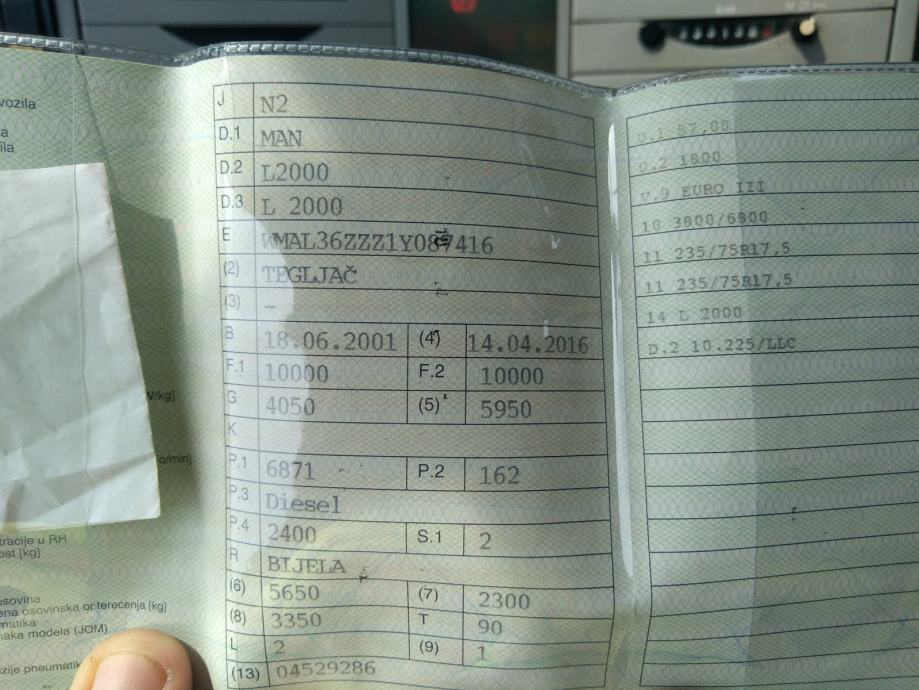 vozila
a
ila
J N2
D.1 MAN
D.2 L2000
D.3 L 2000
E WMAL36ZZZ1Y087416
(2) TEGLJAČ
(3) –
B 18.06.2001 (4) 14.04.2016
F.1 10000 F.2 10000
G 4050 (5) 5950
K
P.1 6871 P.2 162
P.3 Diesel
P.4 2400 S.1 2
R BIJELA
(6) 5650 (7) 2300
(8) 3350 T 90
L 2 (9) 1
(13) 04529286
/kg]
[o/min]
tracije u RH
ost [kg]
osovina
ena osovinska opterećenja [kg]
matika
naka modela (JOM)
zije pneumatik
V.9 EURO III
10 3800/6800
11 235/75R17,5
11 235/75R17,5
14 L 2000
D.2 10.225/LLC